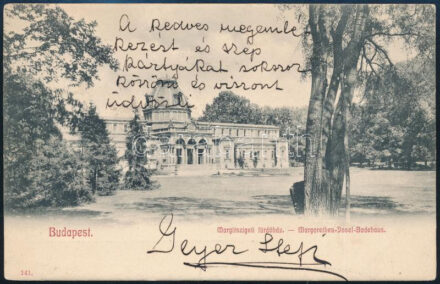 A kedves megemlé
kezést és szép
kártyákat sokszor
köszöni és viszont
üdvözli
Budapest.
Margitszigeti fürdőház. — Margarethen-Insel-Badehaus.
Geyer Stefi
241.